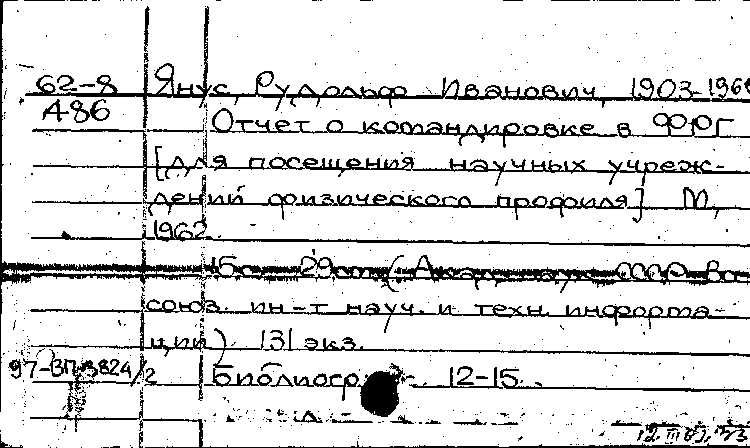 62-8 Янус, Рудольф Иванович, 1903-196
А86 Отчет о командировке в ФРГ
[для посещения научных учреж-
дений физического профиля] М.,
1962.
16с. 29см (Акад. наук СССР. Вс
союз. ин-т науч. и техн. информа-
ции) 131 экз.
97-ВП-3824/2 Библиогр. с. 12-15.